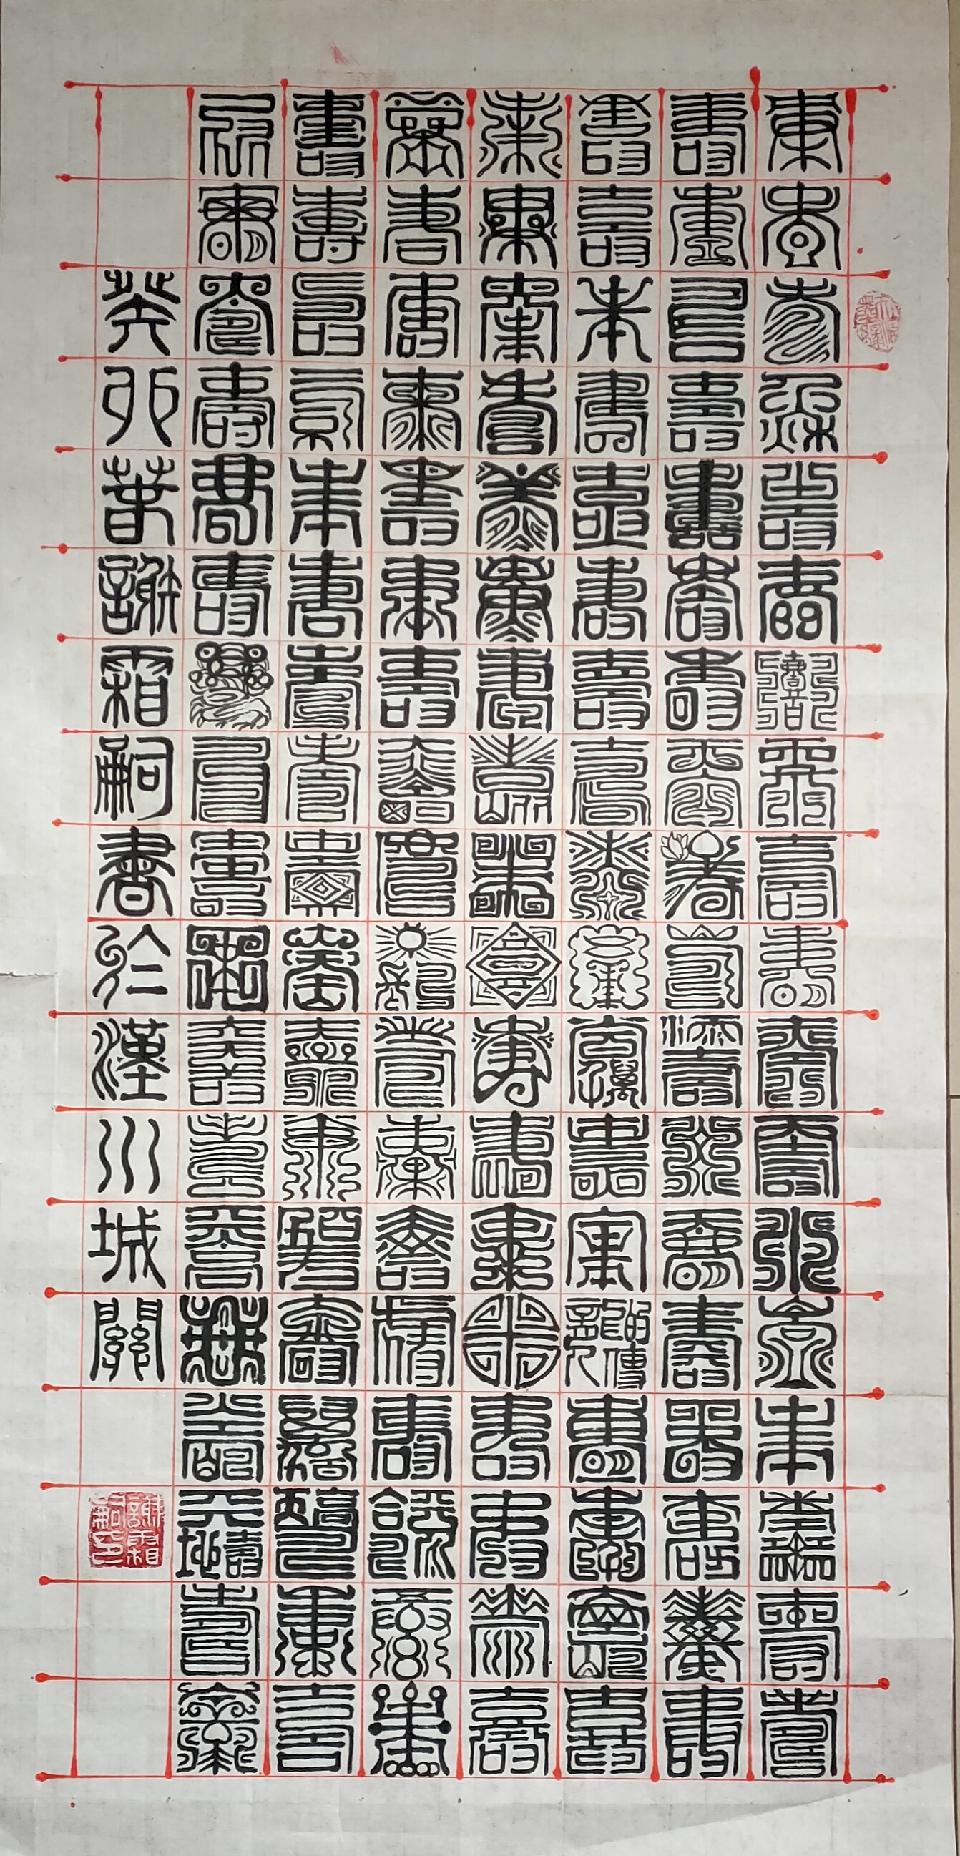 壽壽壽壽壽壽壽壽壽壽壽壽壽壽壽壽壽壽
壽壽壽壽壽壽壽壽壽壽壽壽壽壽壽壽壽壽
壽壽壽壽壽壽壽壽壽壽壽壽壽壽壽壽壽壽
壽壽壽壽壽壽壽壽壽壽壽壽壽壽壽壽壽壽
壽壽壽壽壽壽壽壽壽壽壽壽壽壽壽壽壽壽
壽壽壽壽壽壽壽壽壽壽壽壽壽壽壽壽壽壽
壽壽壽壽壽壽壽壽壽壽壽壽壽壽壽壽壽壽
癸卯春謝霜嗣書於漢川城關
謝霜嗣印